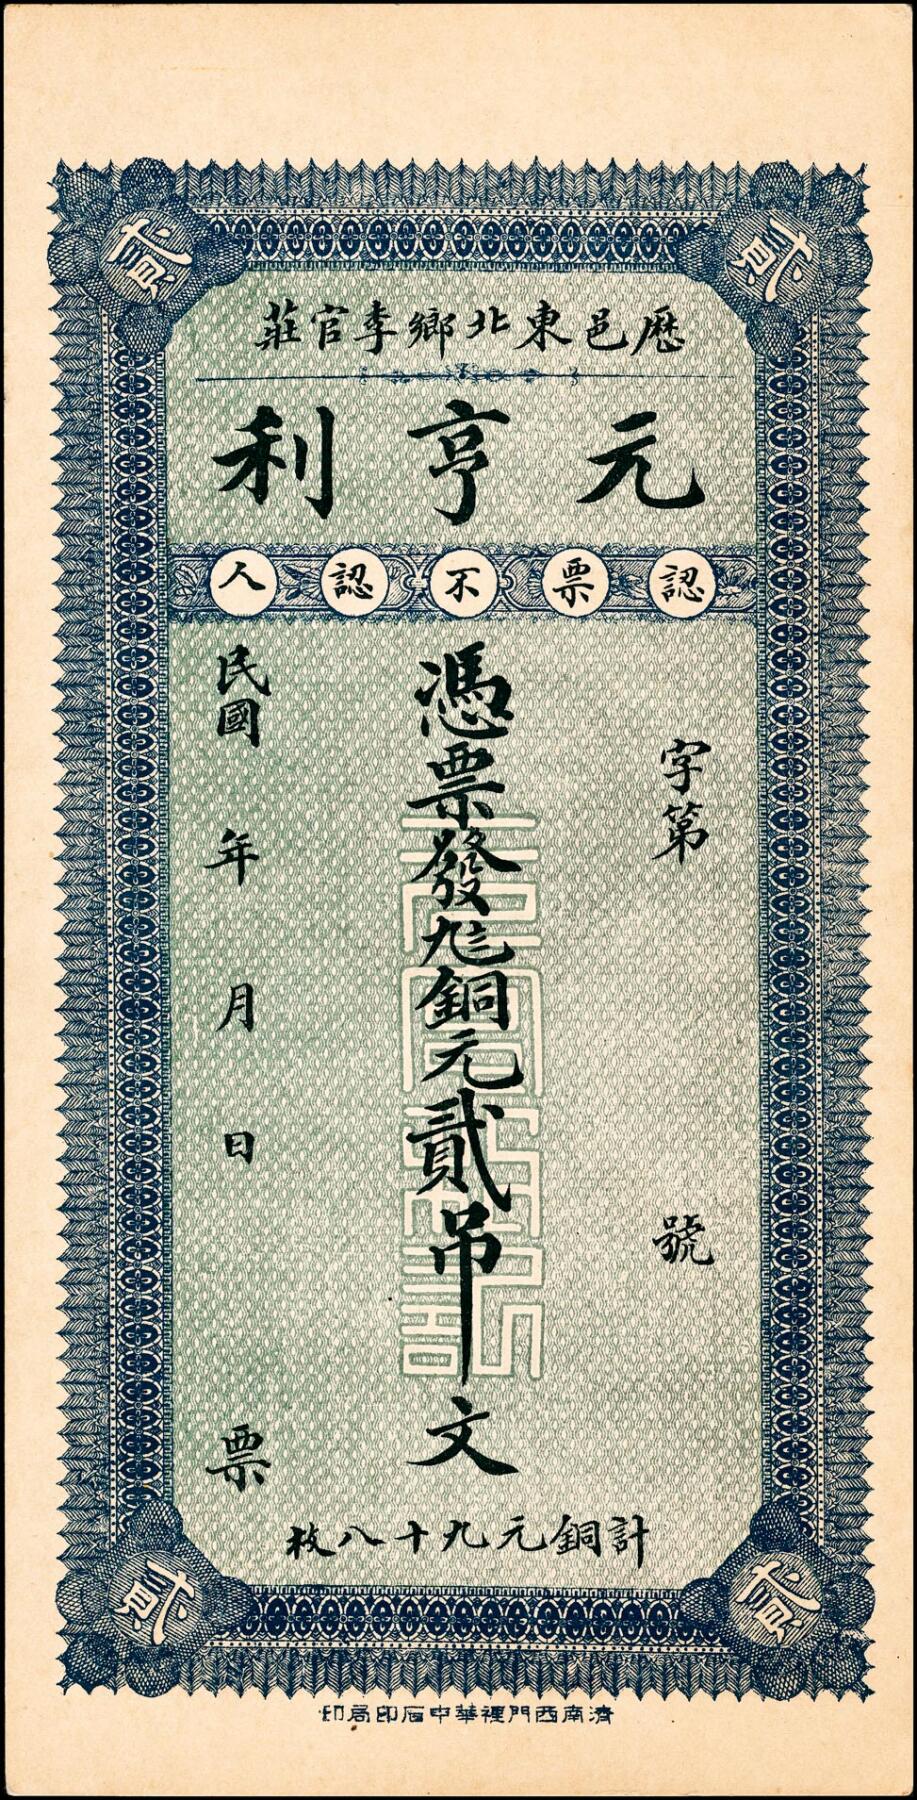 貳
貳
歷邑東北鄉李官莊
元亨利
認票不認人
字第
號
憑票發
銅元貳吊文
民國
年
月
日
票
計銅元九十八枚
貳
貳
濟南西門裡華中石印局印